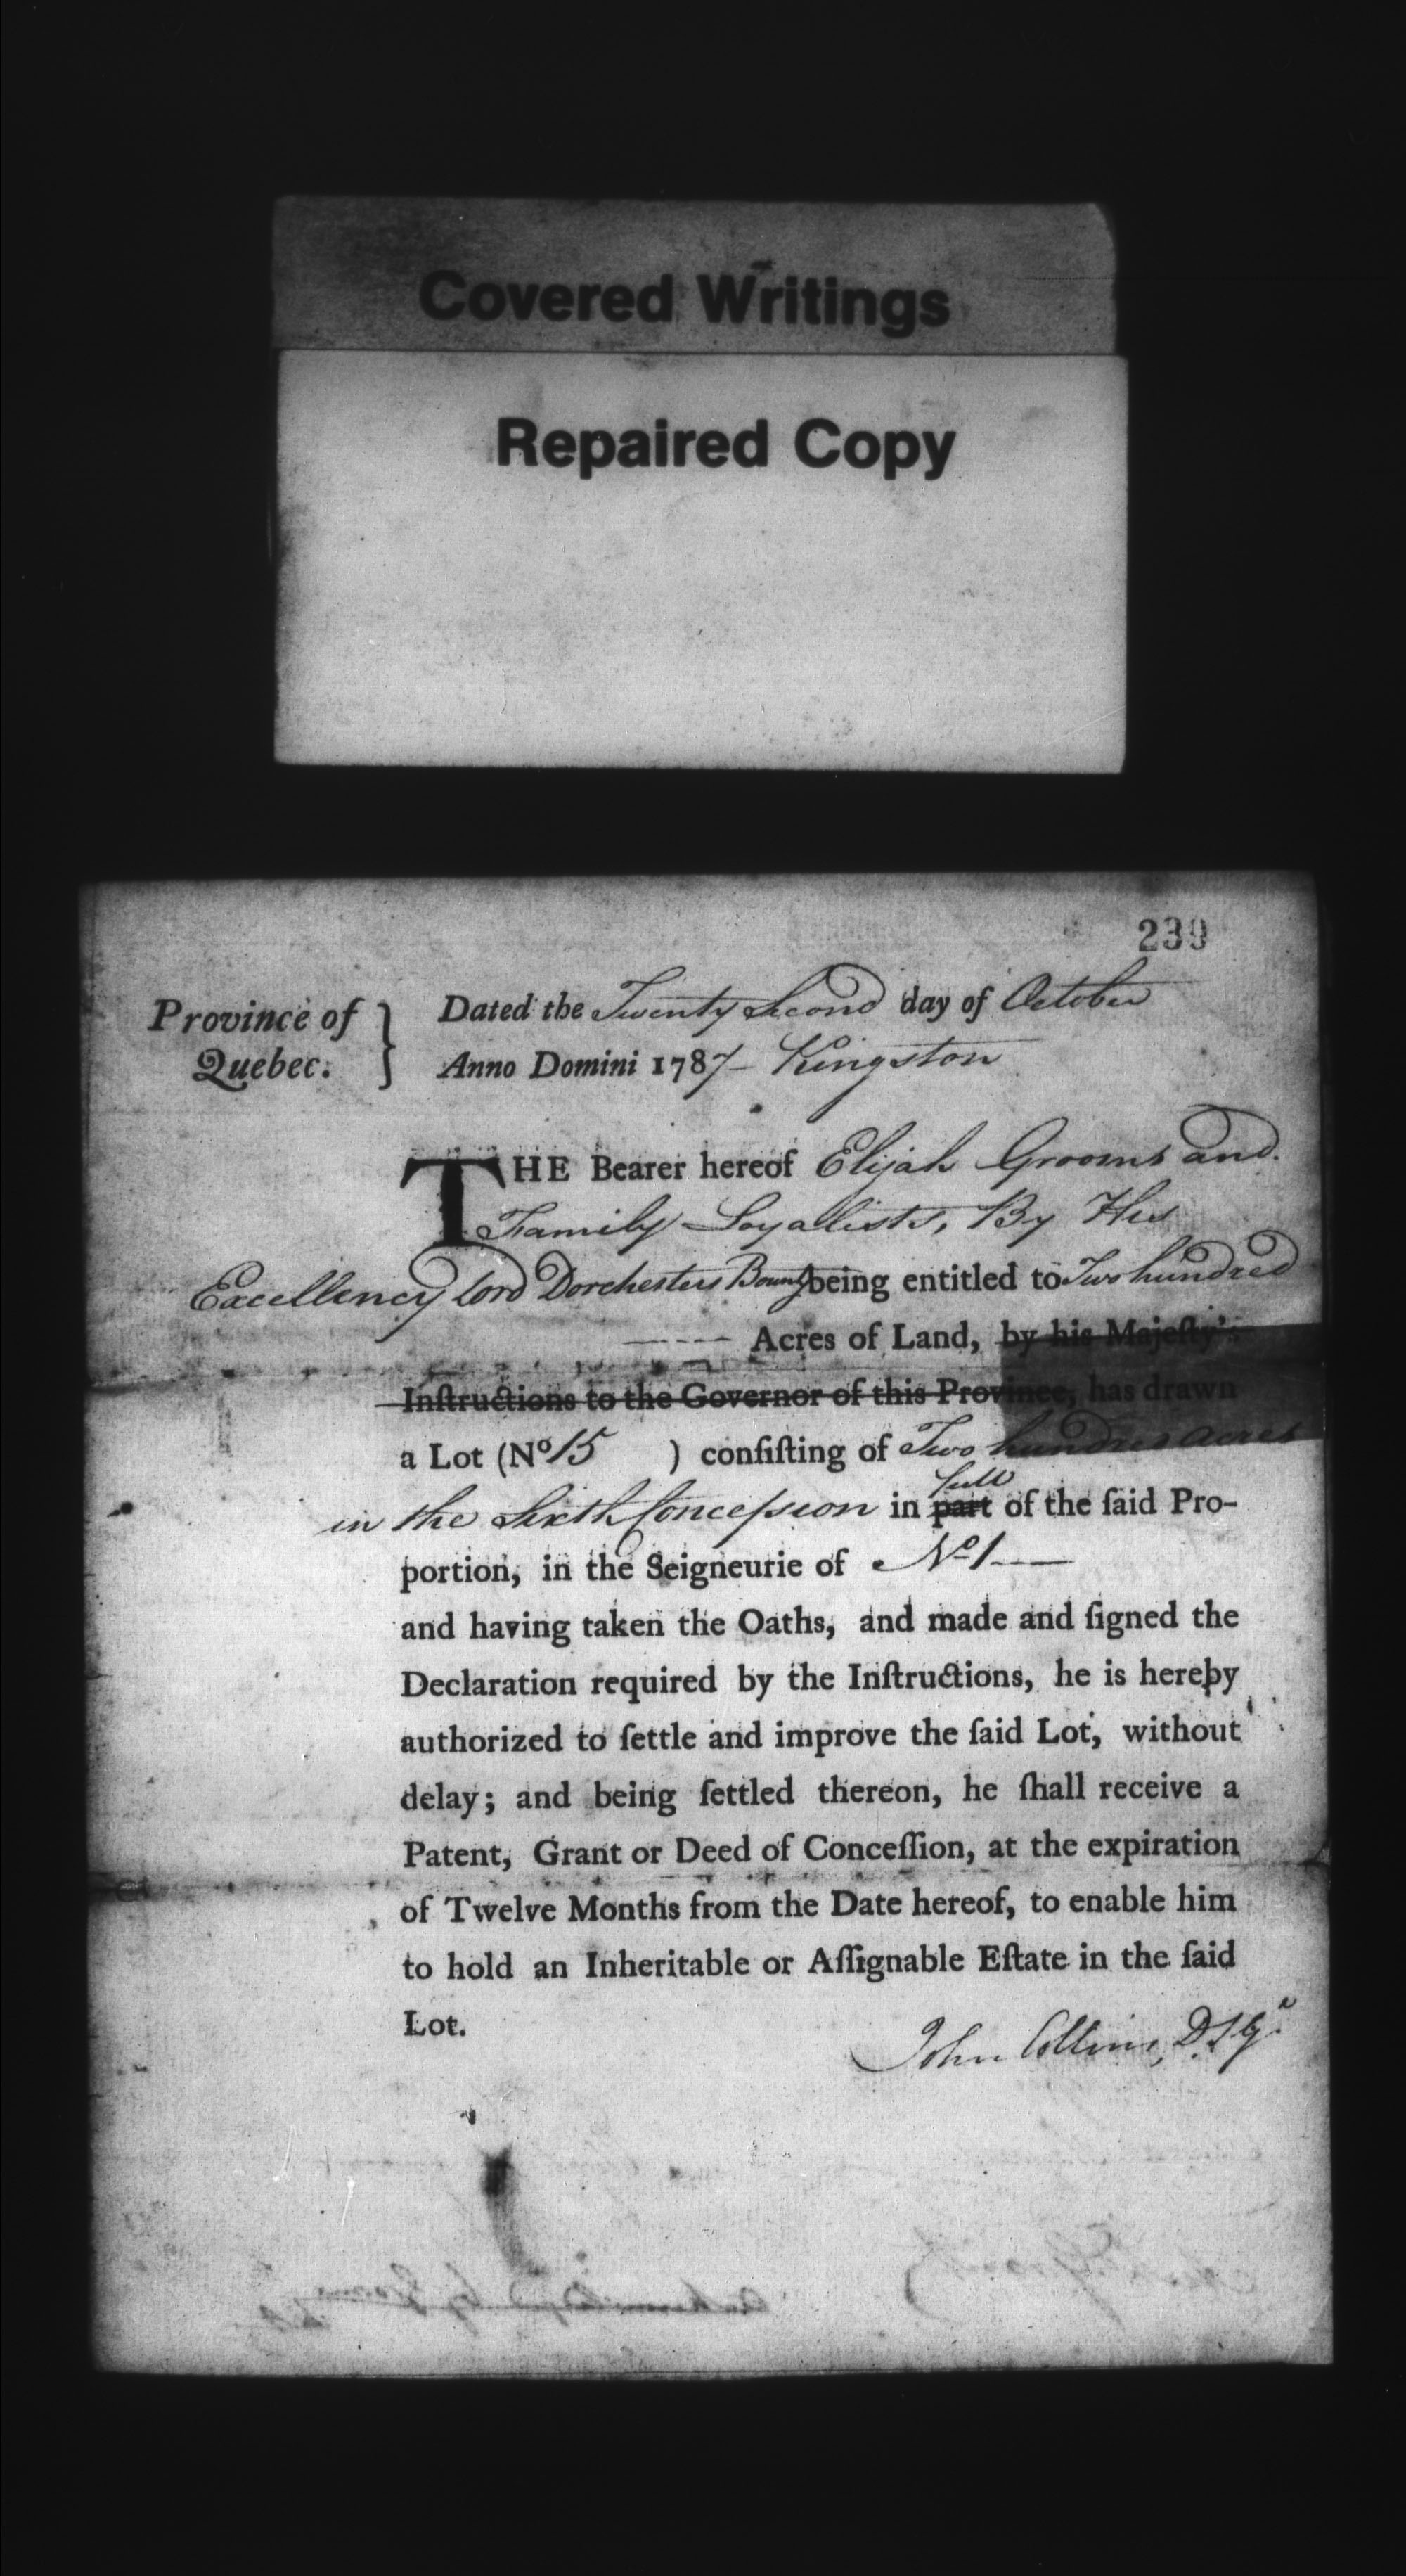 Covered Writings
Repaired Copy
239
Province of Quebec. } Dated the Twenty Second day of October
Anno Domini 1787 - Kingston
THE Bearer hereof Elijah Grooms and
Family Loyalists, By His
Excellency Lord Dorchesters Bounty being entitled to Two hundred
Acres of Land, by his Majeſty's
Inſtructions to the Governor of this Province, has drawn
a Lot (No 15 ) conſiſting of Two hundred acres
full
in the Sixth Conceſsion in part of the ſaid Pro-
portion, in the Seigneurie of No 1
and having taken the Oaths, and made and ſigned the
Declaration required by the Inſtructions, he is hereby
authorized to ſettle and improve the ſaid Lot, without
delay; and being ſettled thereon, he ſhall receive a
Patent, Grant or Deed of Conceſſion, at the expiration
of Twelve Months from the Date hereof, to enable him
to hold an Inheritable or Aſſignable Eſtate in the ſaid
Lot.
John Collins, D.S.G.